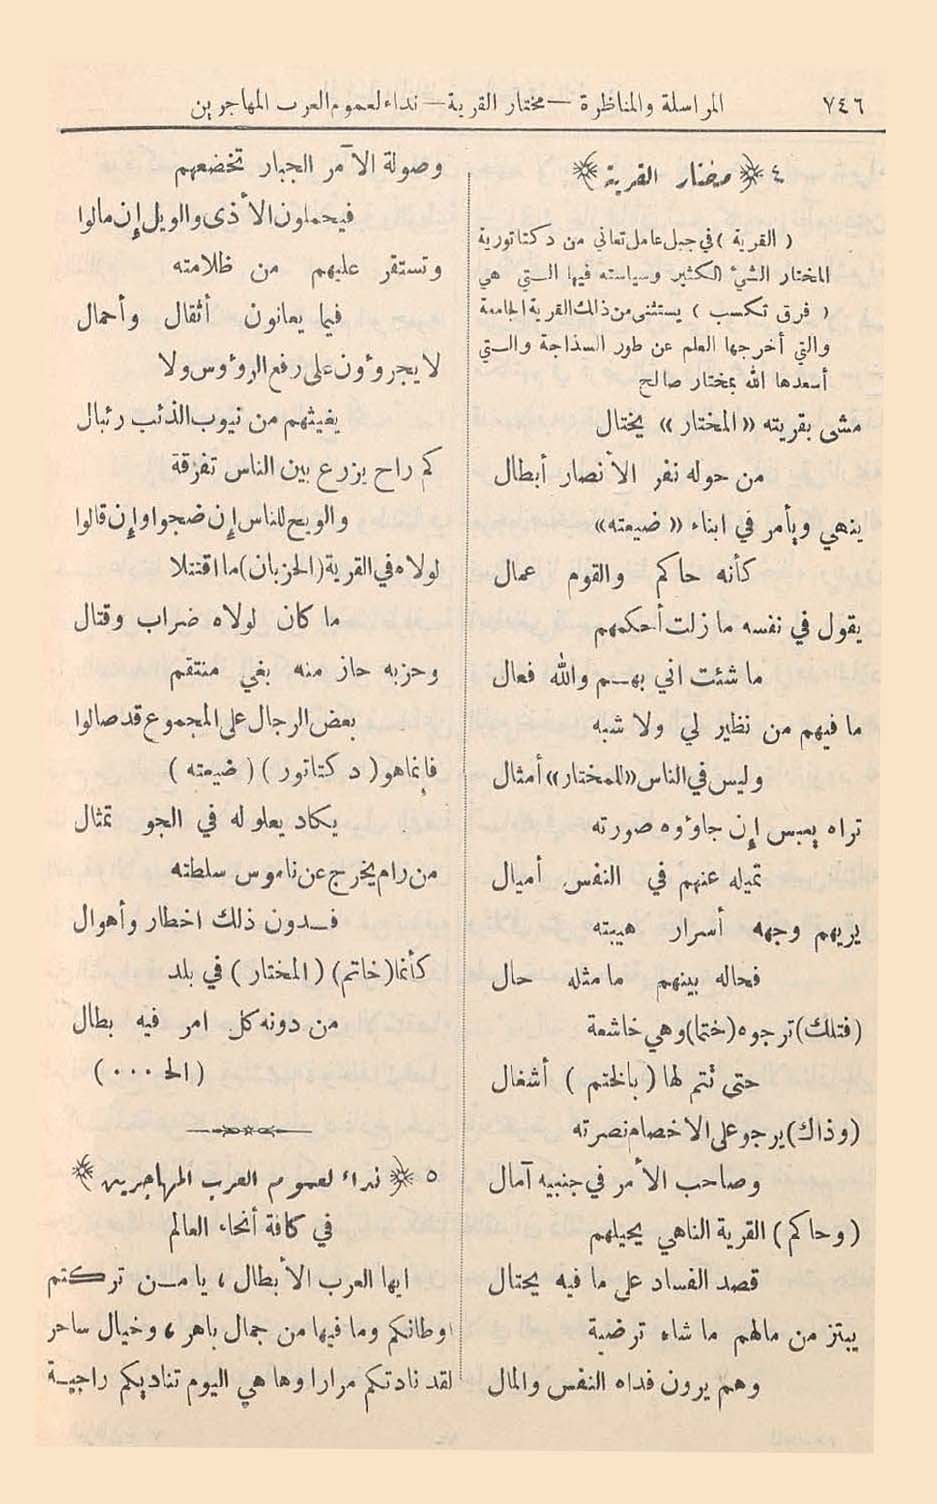 ٧٤٦ المراسلة والمناظرة — مختار القرية — نداء لعموم العرب المهاجرين
٤ ﴿ مختار القرية ﴾
( القرية ) في جبل عامل تعاني من دكتاتورية
المختار الشيء الكثير وسياسته فيها التي هي
( فرق تكسب ) يستثنى من ذلك القرية الجامعة
والتي أخرجها العلم عن طور السذاجة والتي
أسعدها الله بمختار صالح
مشى بقريته «المختار» يختال
من حوله نفر الأنصار أبطال
ينهي ويأمر في ابناء «ضيعته»
كأنه حاكم والقوم عمال
يقول في نفسه ما زلت أحكمهم
ما شئت اني بهم والله فعال
ما فيهم من نظير لي ولا شبه
وليس في الناس «للمختار» أمثال
تراه يعبس إن جاؤوه صورته
تميله عنهم في النفس أميال
يريهم وجهه أسرار هيبته
فحاله بينهم ما مثله حال
(فتلك) ترجوه (ختما) وهي خاشعة
حتى تتم لها (بالختم) أشغال
(وذاك) يرجو على الاخصام نصرته
وصاحب الأمر في جنبيه آمال
(وحاكم) القرية الناهي يحيلهم
قصد الفساد على ما فيه يحتال
يبتز من مالهم ما شاء ترضية
وهم يرون فداه النفس والمال
وصولة الآمر الجبار تخضعهم
فيحملون الأذى والويل إن مالوا
وتستقر عليهم من ظلامته
فيما يعانون أثقال وأحمال
لا يجروؤن على رفع الرؤوس ولا
يغيثهم من نيوب الذئب رئبال
كم راح يزرع بين الناس تفرقة
والويح للناس إن ضجوا وإن قالوا
لولاه في القرية (الحزبان) ما اقتتلا
ما كان لولاه ضراب وقتال
وحزبه حاز منه بغي منتقم
بعض الرجال على المجموع قد صالوا
فإنما هو (دكتاتور) (ضيعته)
يكاد يعلو له في الجو تمثال
من رام يخرج عن ناموس سلطته
فدون ذلك اخطار وأهوال
كأنما (خاتم) (المختار) في بلد
من دونه كل امر فيه بطال
(الخ ...)
٥ ﴿ نداء لعموم العرب المهاجرين ﴾
في كافة أنحاء العالم
ايها العرب الأبطال ، يا من تركتم
اوطانكم وما فيها من جمال باهر ، وخيال ساحر
لقد نادتكم مرارا وها هي اليوم تناديكم راجية